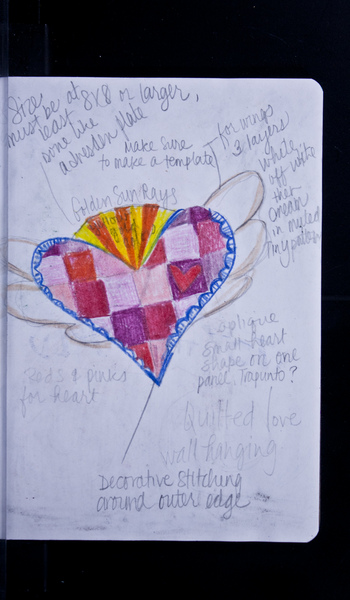 Size
must be at
least
8x8 or larger,
some like
a dresden plate
Make sure
to make a template
for wings
3 layers
white
off white
then
cream
in muted
tiny pattern
Golden Sun Rays
applique
small heart
shape on one
panel, Trapunto?
Reds & pinks
for heart
Quilted love
wall hanging
Decorative Stitching
around outer edge